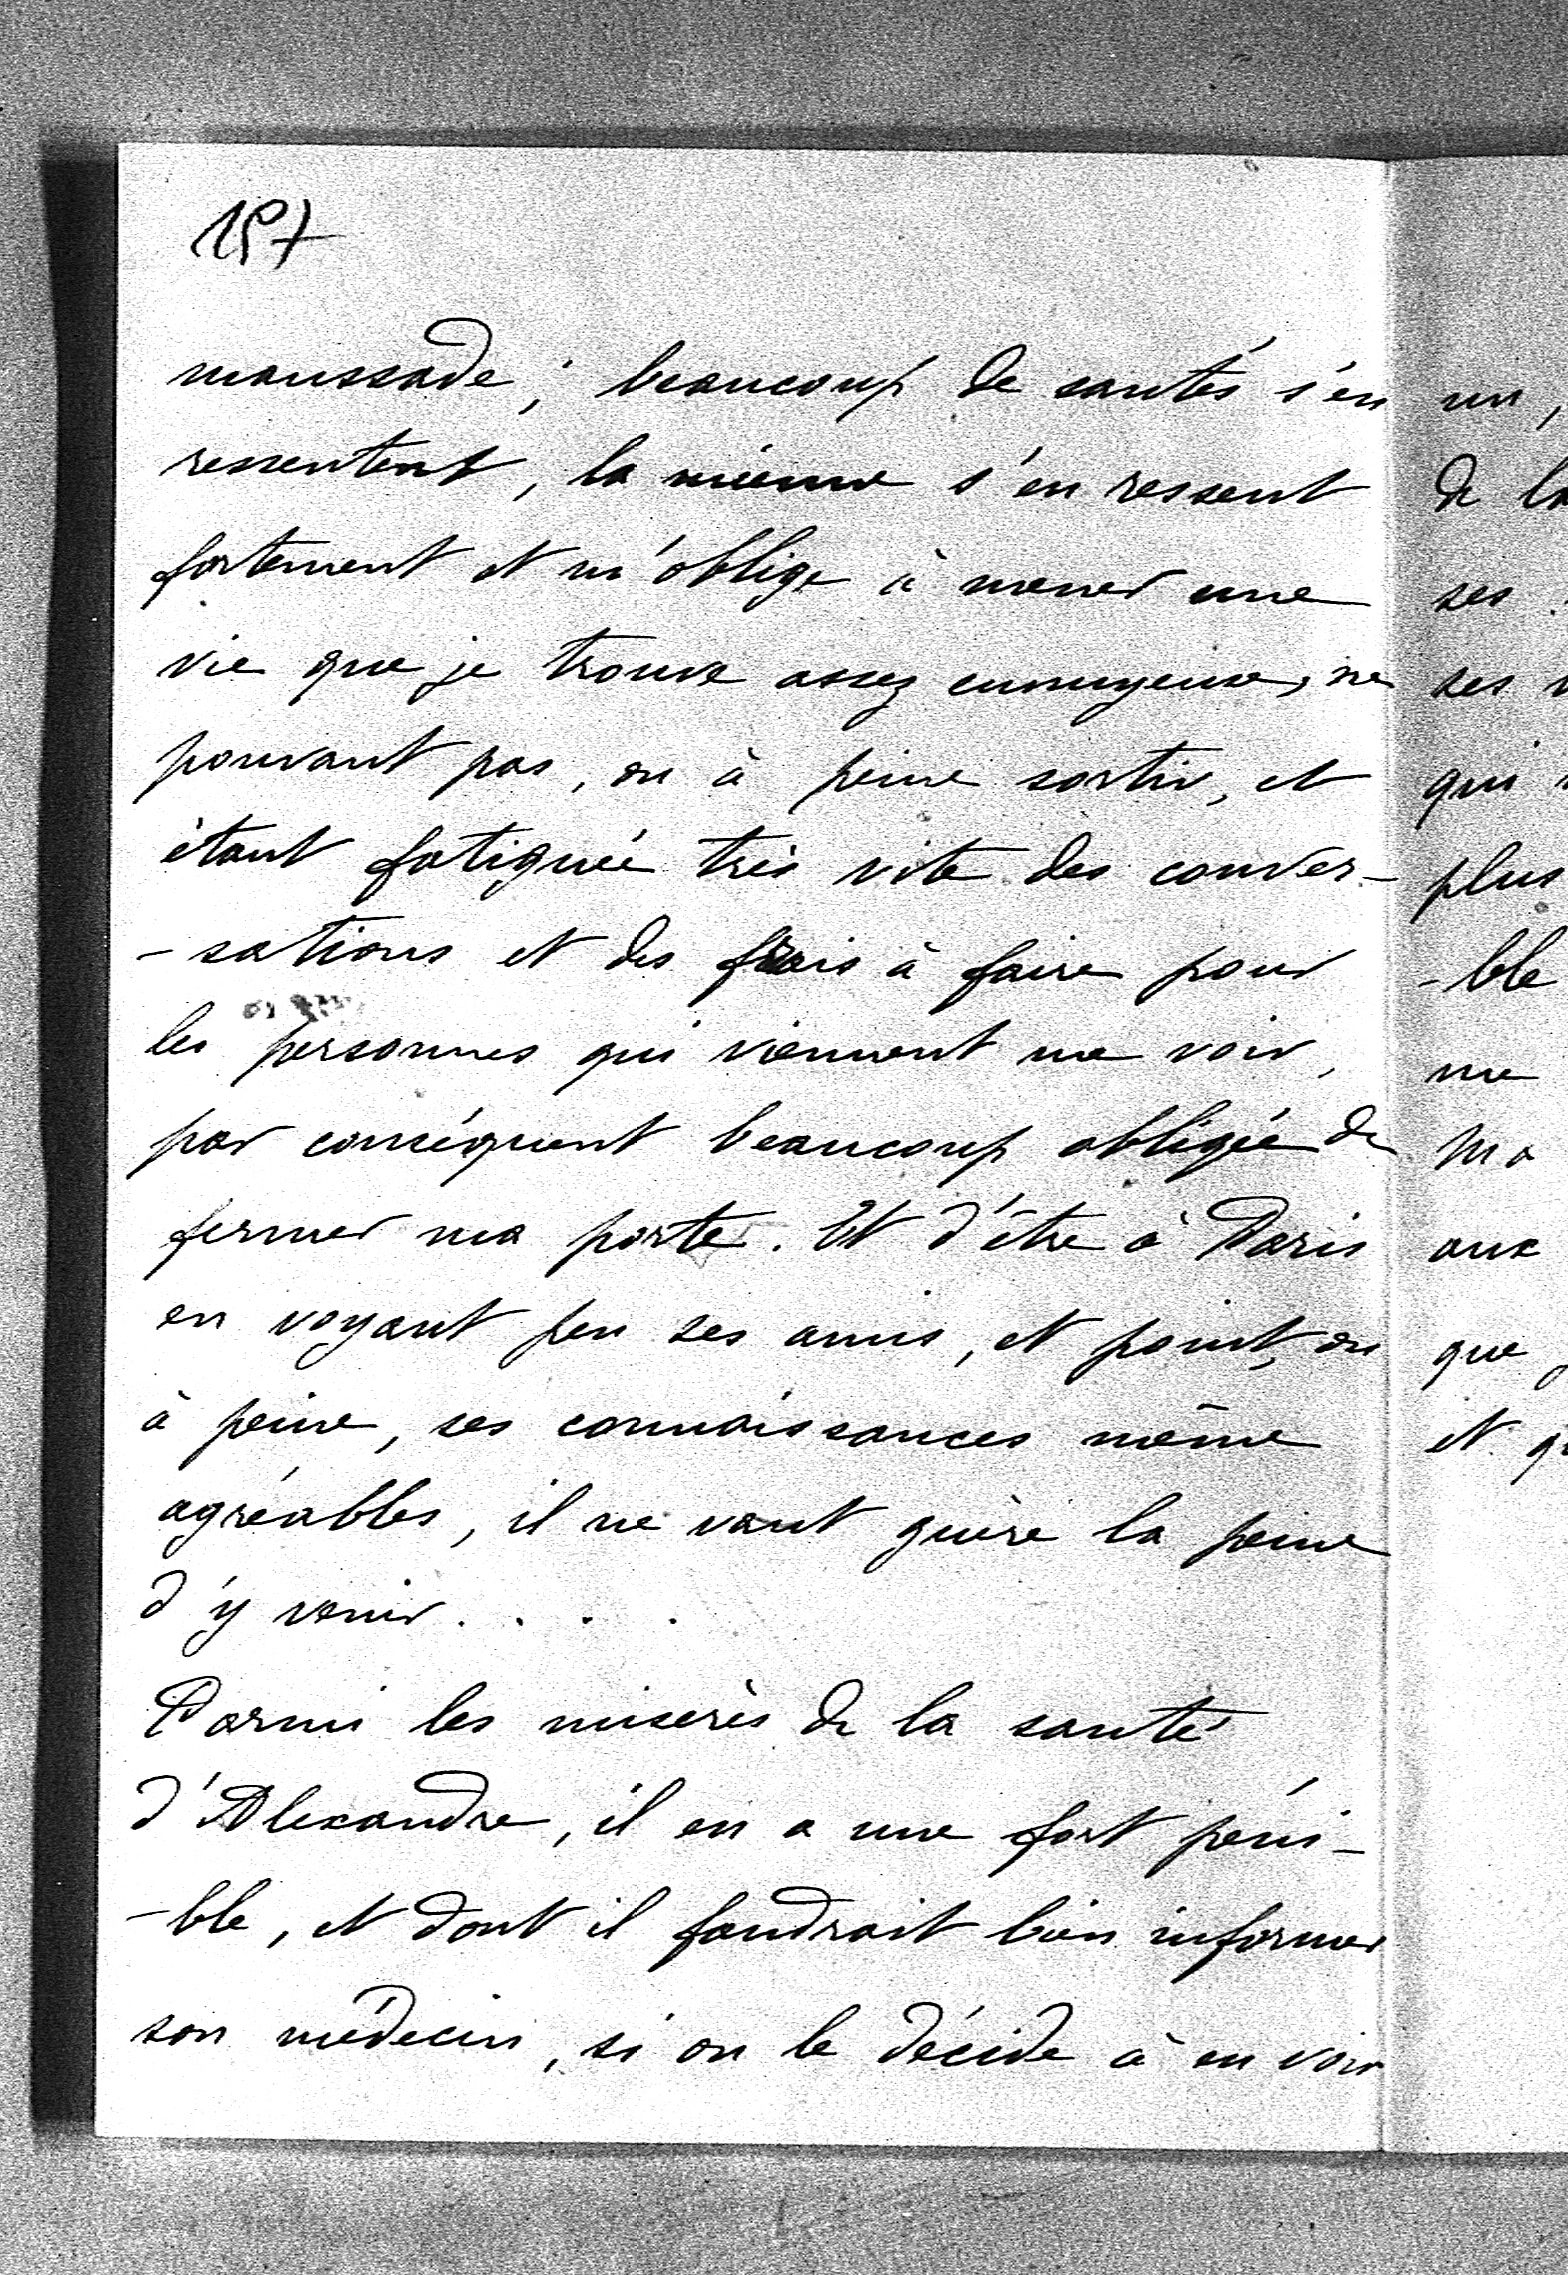 157
maussade ; beaucoup de santés s'en
ressentent, la mienne s'en ressent
fortement et m'oblige à mener une
vie que je trouve assez ennuyeuse, ne
pouvant pas, ou à peine sortir, et
étant fatiguée très vite des conver-
-sations et des frais à faire pour
les personnes qui viennent me voir,
par conséquent beaucoup obligée de
fermer ma porte. Et d'être à Paris
en voyant peu ses amis, et point, ou
à peine, ses connaissances même
agréables, il ne vaut guère la peine
d'y venir. . . .
Parmi les miserès de la santé
d'Alexandre, il en a une fort péni-
-ble, et dont il faudrait bien informer
son médecin, si on le décide à en voir
un,
de la
ses
ses
qui
plus
-ble
me
Ma
aux
que
et